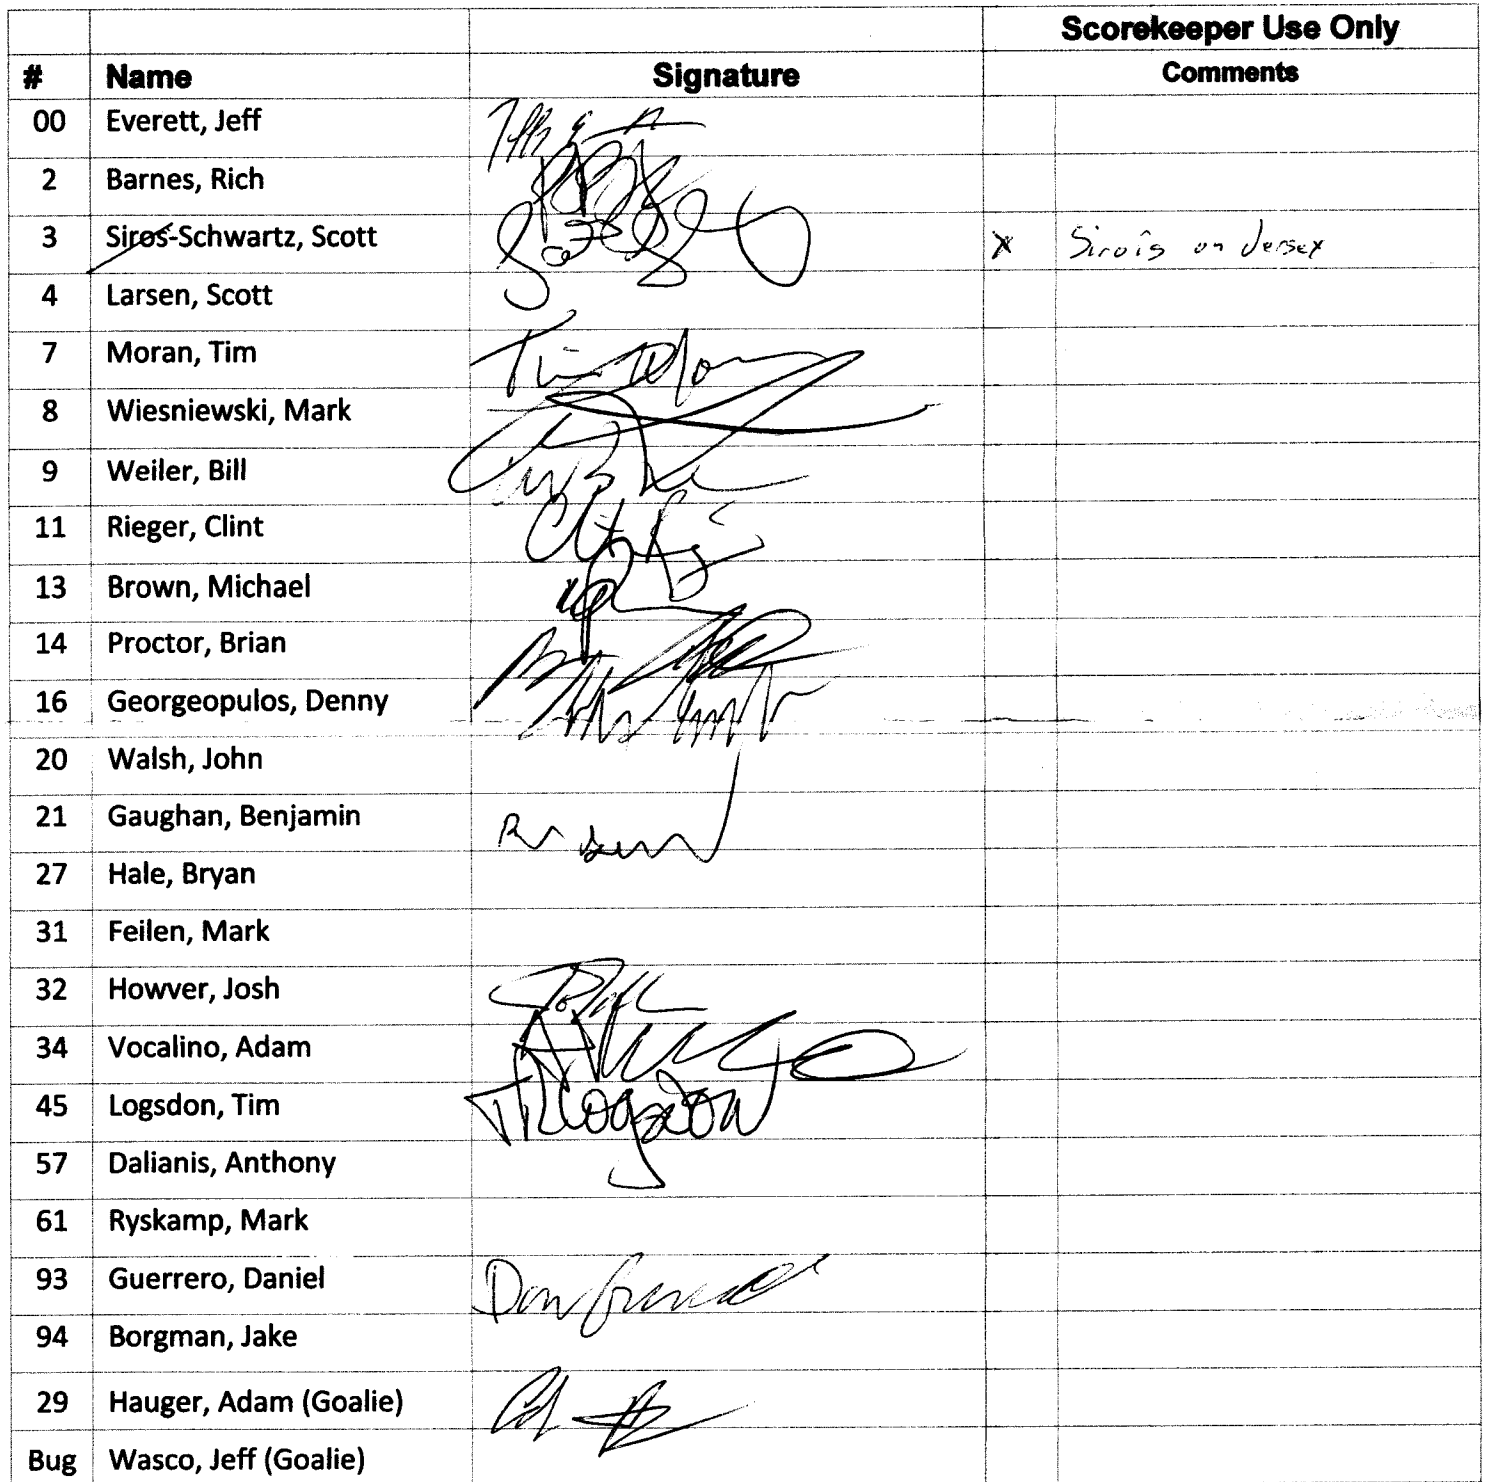 Scorekeeper Use Only
# Name Signature Comments
00 Everett, Jeff
2 Barnes, Rich
3 Siros-Schwartz, Scott x Sirois on Jersey
4 Larsen, Scott
7 Moran, Tim
8 Wiesniewski, Mark
9 Weiler, Bill
11 Rieger, Clint
13 Brown, Michael
14 Proctor, Brian
16 Georgeopulos, Denny
20 Walsh, John
21 Gaughan, Benjamin
27 Hale, Bryan
31 Feilen, Mark
32 Howver, Josh
34 Vocalino, Adam
45 Logsdon, Tim TLogsdon
57 Dalianis, Anthony
61 Ryskamp, Mark
93 Guerrero, Daniel
94 Borgman, Jake
29 Hauger, Adam (Goalie)
Bug Wasco, Jeff (Goalie)